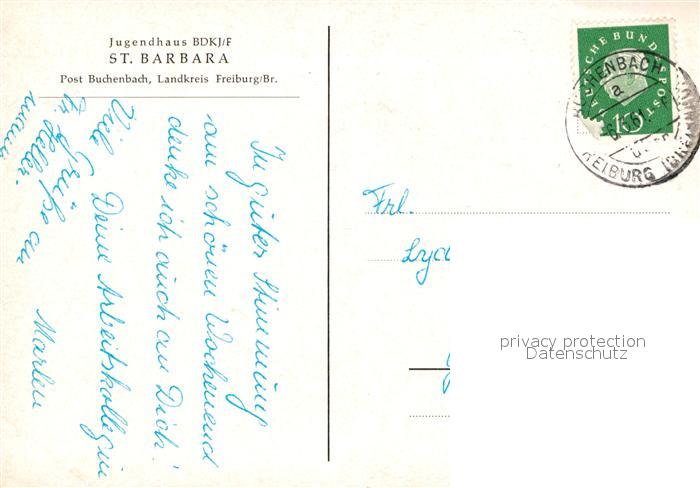 Jugendhaus BDKJ/F
ST. BARBARA
Post Buchenbach, Landkreis Freiburg/Br.
In guter Stimmung
am schönen Wochenend
denke ich auch an Dich!
Deine Arbeitskollegin
Marlen
Viele Grüße an
DEUTSCHE BUNDESPOST
10
BUCHENBACH
a
FREIBURG
Frl.
privacy protection
Datenschutz